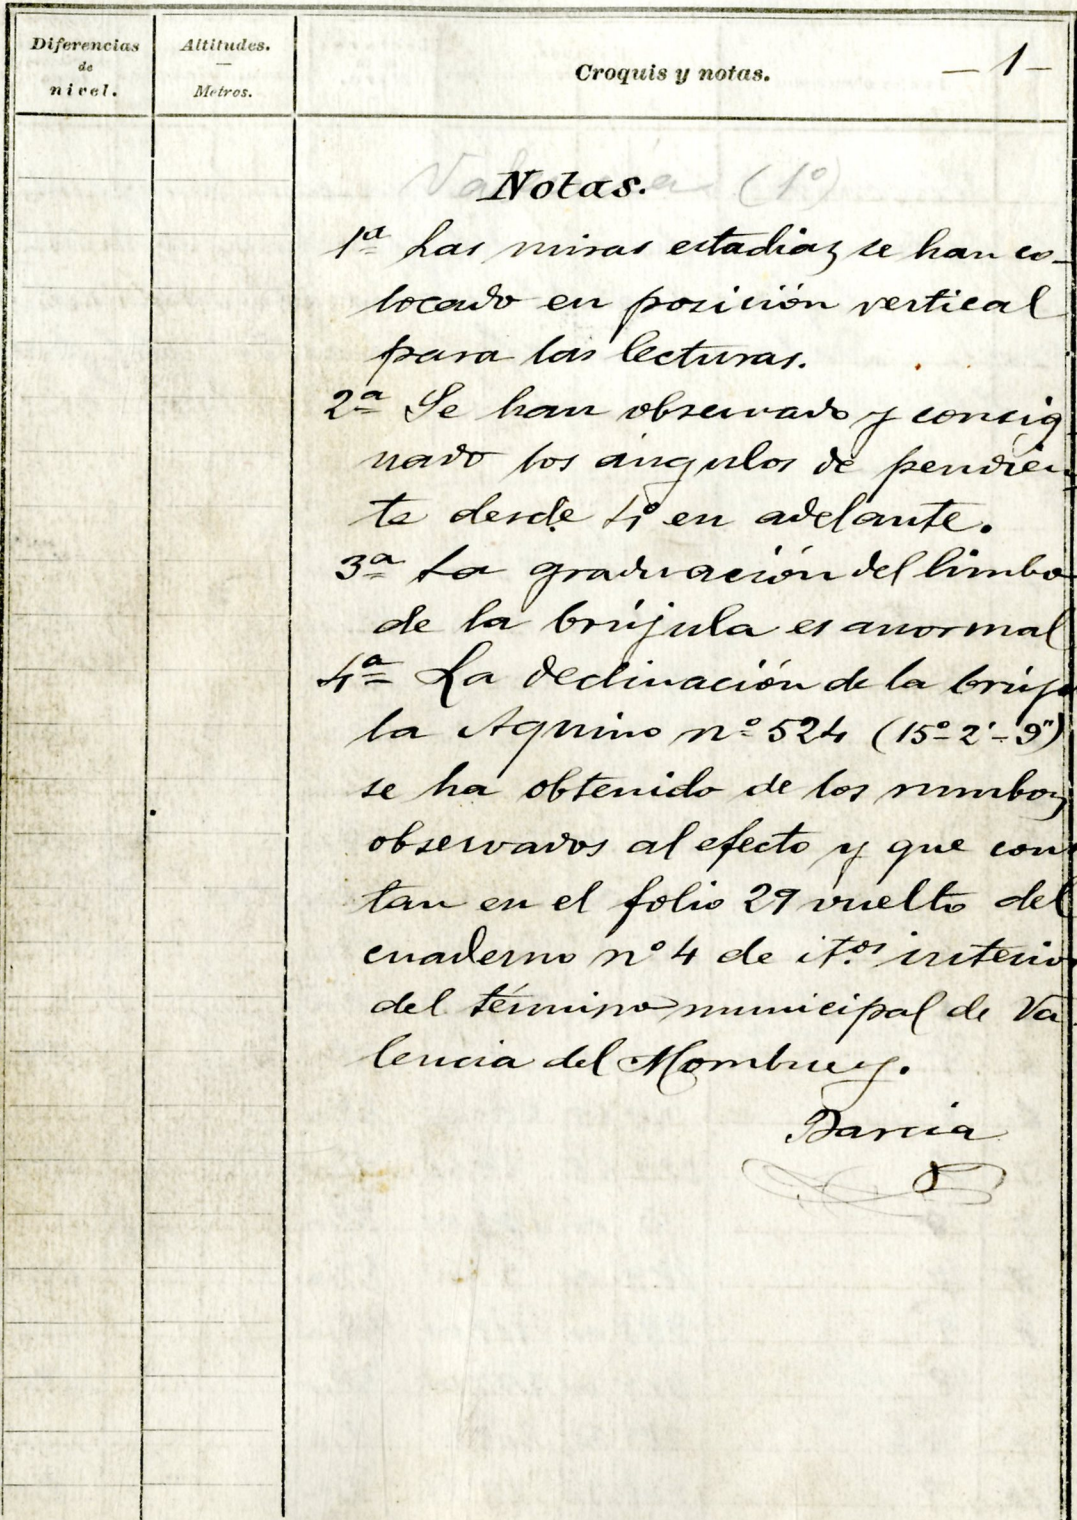 Diferencias
de
nivel.
Altitudes.
Metros.
Croquis y notas.
— 1 —
(1º)
Notas.
1ª Las miras estadias se han co-
locado en posición vertical
para las lecturas.
2ª Se han observado y consig
nado los ángulos de pendien
te desde 4º en adelante.
3ª La graduación del limbo
de la brújula es anormal
4ª La declinación de la brúju
la Aquino nº 524 (15º-2'-9")
se ha obtenido de los rumbos
observados al efecto y que cons
tan en el folio 29 vuelto del
cuaderno nº 4 de it.os interior
del término municipal de Va
lencia del Mombuey.
Barcia